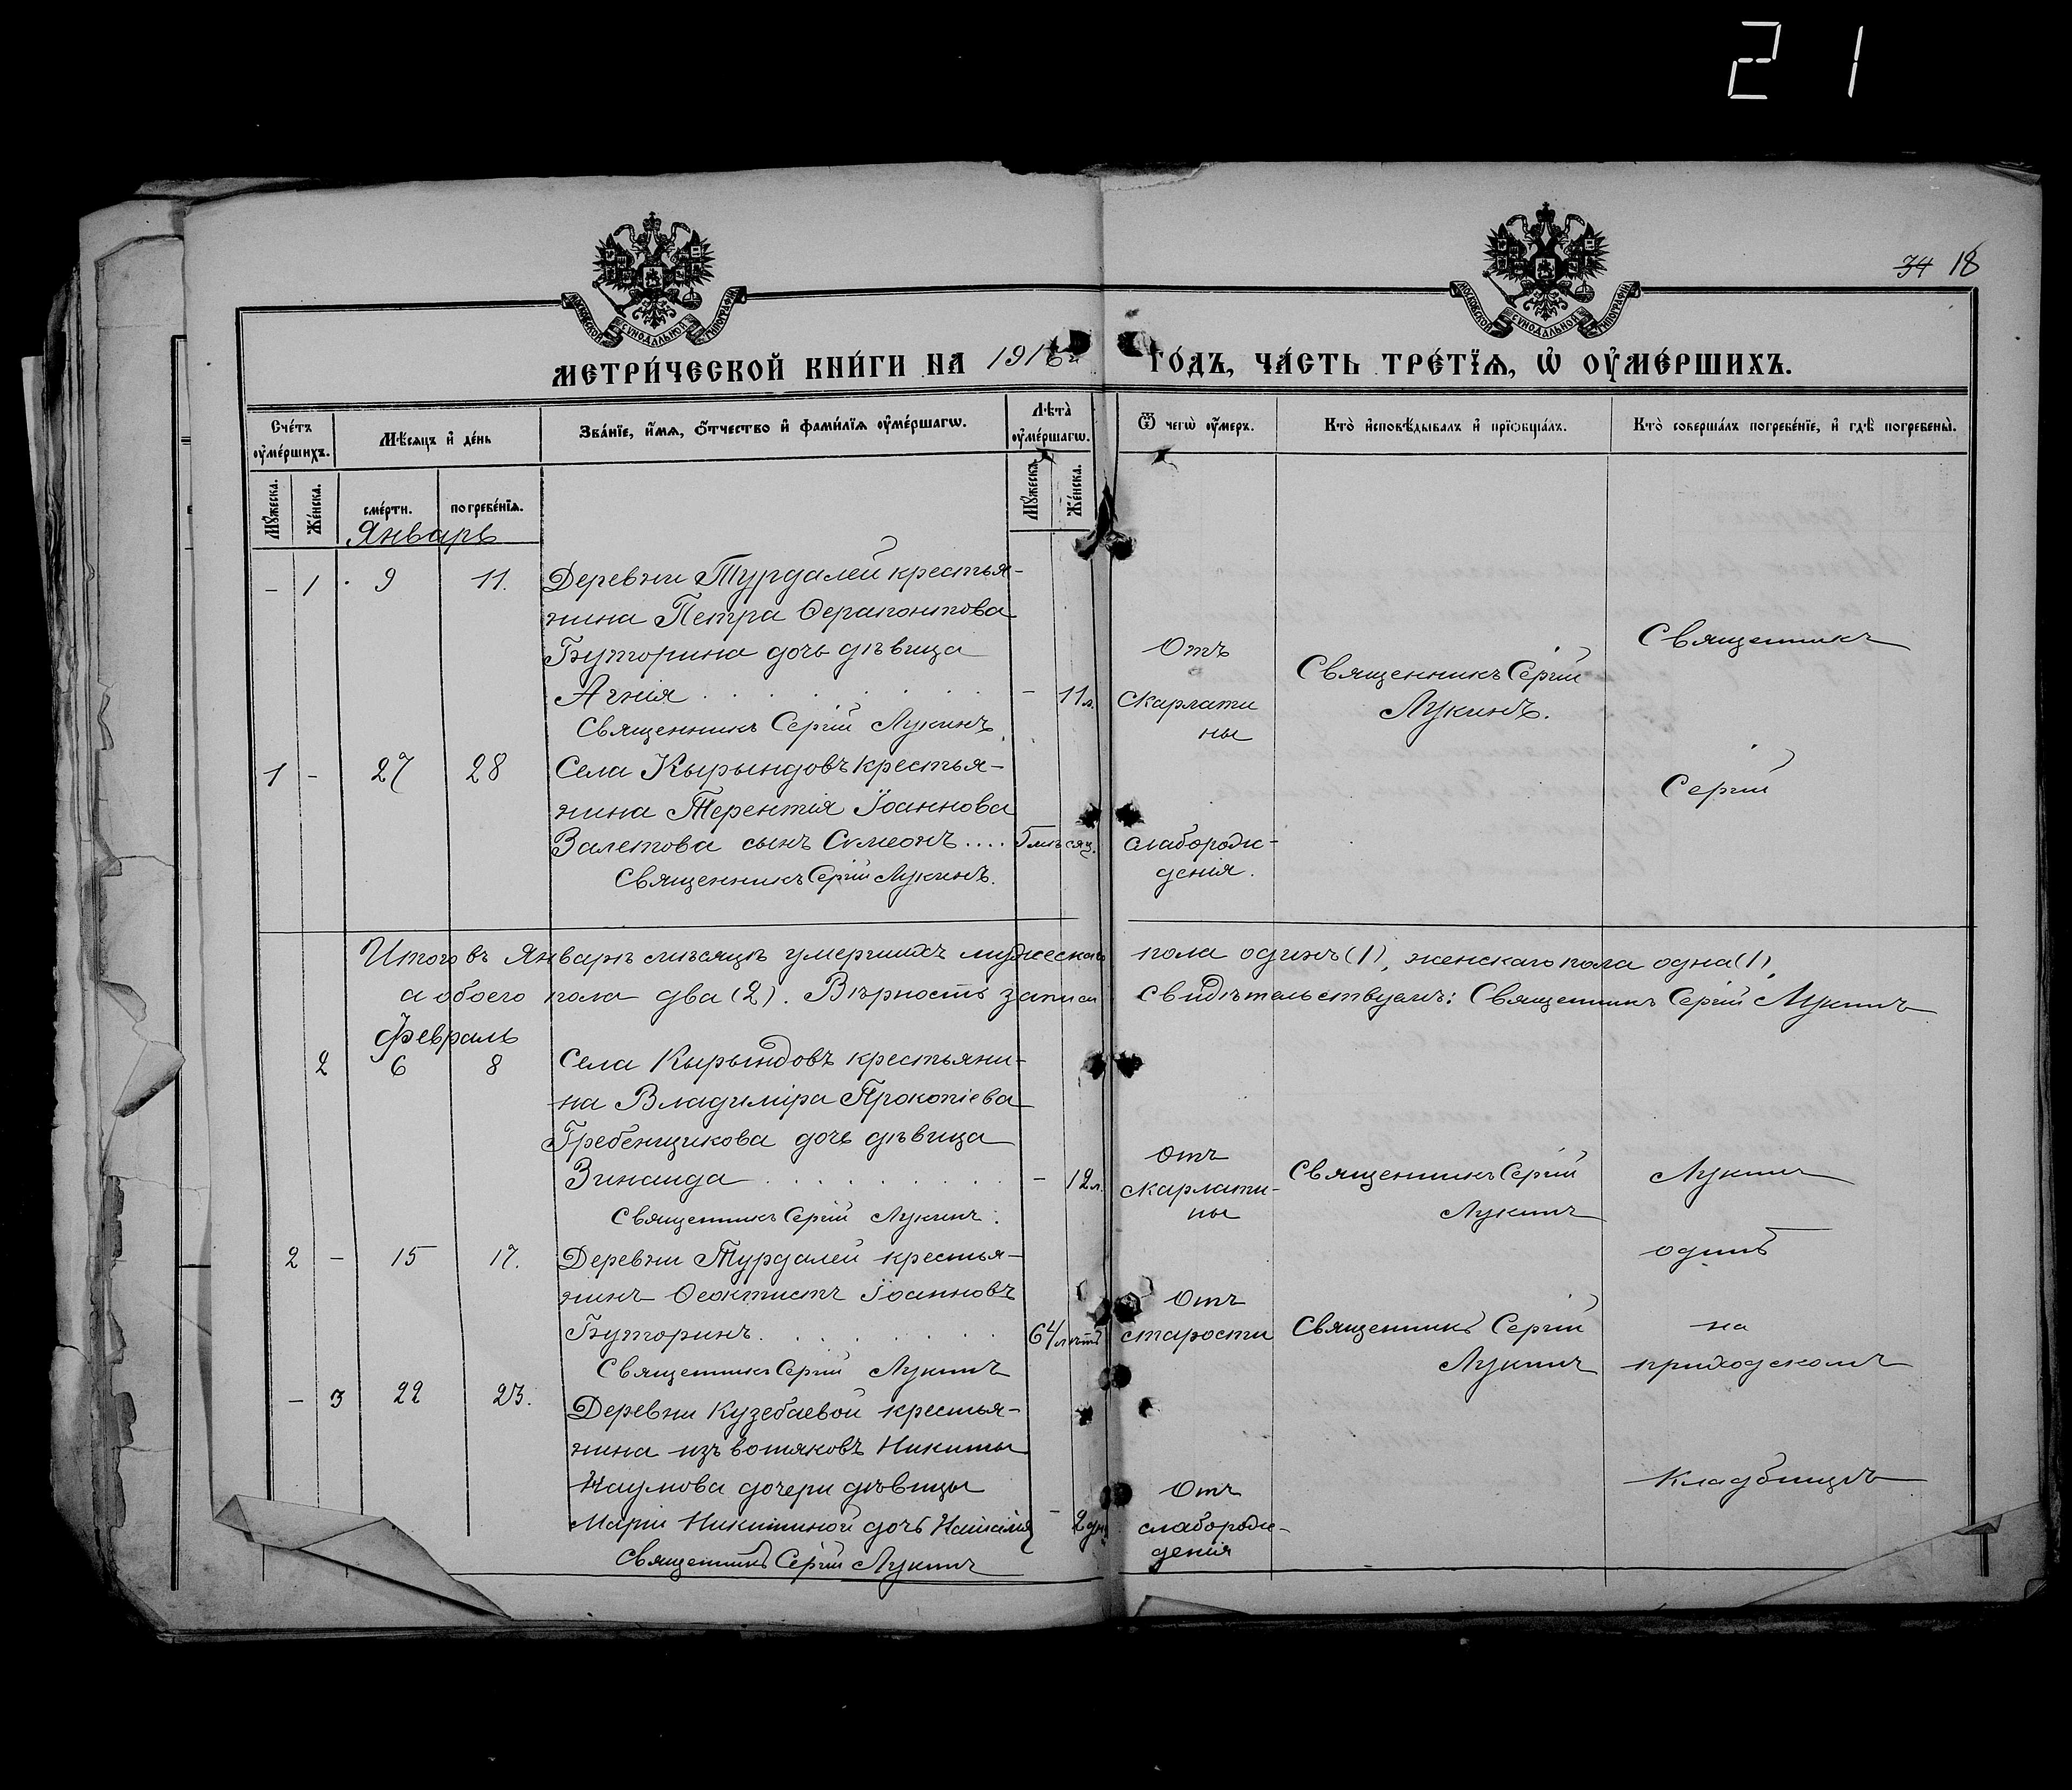 21
34 18
МОСКОВСКОЙ СУНОДАЛЬНОЙ ТИПОГРАФІИ
МОСКОВСКОЙ СУНОДАЛЬНОЙ ТИПОГРАФІИ
МЕТРИ́ЧЕСКОЙ КНИ́ГИ НА 1916 г ГО́ДЪ, ЧА́СТЬ ТРЕ́ТЇѦ, Ѡ҆ ОУ҆МЕ́РШИХЪ.
Сче́тъ оу҆ме́ршихъ.
Мѣ́сяцъ и҆ де́нь
Зва́нїе, и҆́мѧ, ѻ҆́тчество и҆ фами́лїѧ оу҆ме́ршагѡ.
Лѣта̀ оу҆ме́ршагѡ.
Ѿ чегѡ̀ оу҆́меръ.
Кто̀ и҆сповѣ́дывалъ и҆ прїѡбща́лъ.
Кто̀ соверша́лъ погребе́нїе, и҆ гдѣ̀ погребены̀.
Мꙋ́жеска. Же́нска. сме́рти. погребе́нїѧ. Мꙋ́жеска. Же́нска.
Январь
– 1 9 11. Деревни Турдалей крестья-
нина Петра Ѳерапонтова
Буторина дочь дѣвица
Агнія . . . . . . . – 11 л.
Священникъ Сергій Лукинъ.
Отъ
Скарлати
ны
Священникъ Сергій
Лукинъ.
Священникъ
1 – 27 28 Села Кырындовъ крестья-
нина Терентія Іоаннова
Залетова сынъ Сѵмеонъ.... 5 мѣсяц.
Священникъ Сергій Лукинъ.
слаборож-
денія.
Сергій
Итого въ Январѣ мѣсяцѣ умершихъ мужеска пола одинъ (1), женскаго пола одна (1),
а обоего пола два (2). Вѣрность записи свидѣтельствуемъ: Священникъ Сергій Лукинъ
Февраль
2 6 8 Села Кырындовъ крестьяни-
на Владиміра Прокопіева
Гребенщикова дочь дѣвица
Зинаида . . . . . . . – 12 л.
Священникъ Сергій Лукинъ.
отъ
скарлати-
ны
Священникъ Сергій
Лукинъ
Лукинъ
2 – 15 17. Деревни Турдалей крестья-
нинъ Ѳеоктистъ Іоанновъ
Буторинъ. . . . . . . 64 лѣтъ
Священникъ Сергій Лукинъ
Отъ
старости
Священникъ Сергій
Лукинъ
одинъ
на
приходскомъ
– 3 22 23. Деревни Кузебаевой крестья-
нина изъ вотяковъ Никиты
Наумова дочери дѣвицы
Маріи Никитиной дочь Наталія – 2 дн.
Священникъ Сергій Лукинъ
Отъ
слаборож-
денія
кладбищѣ